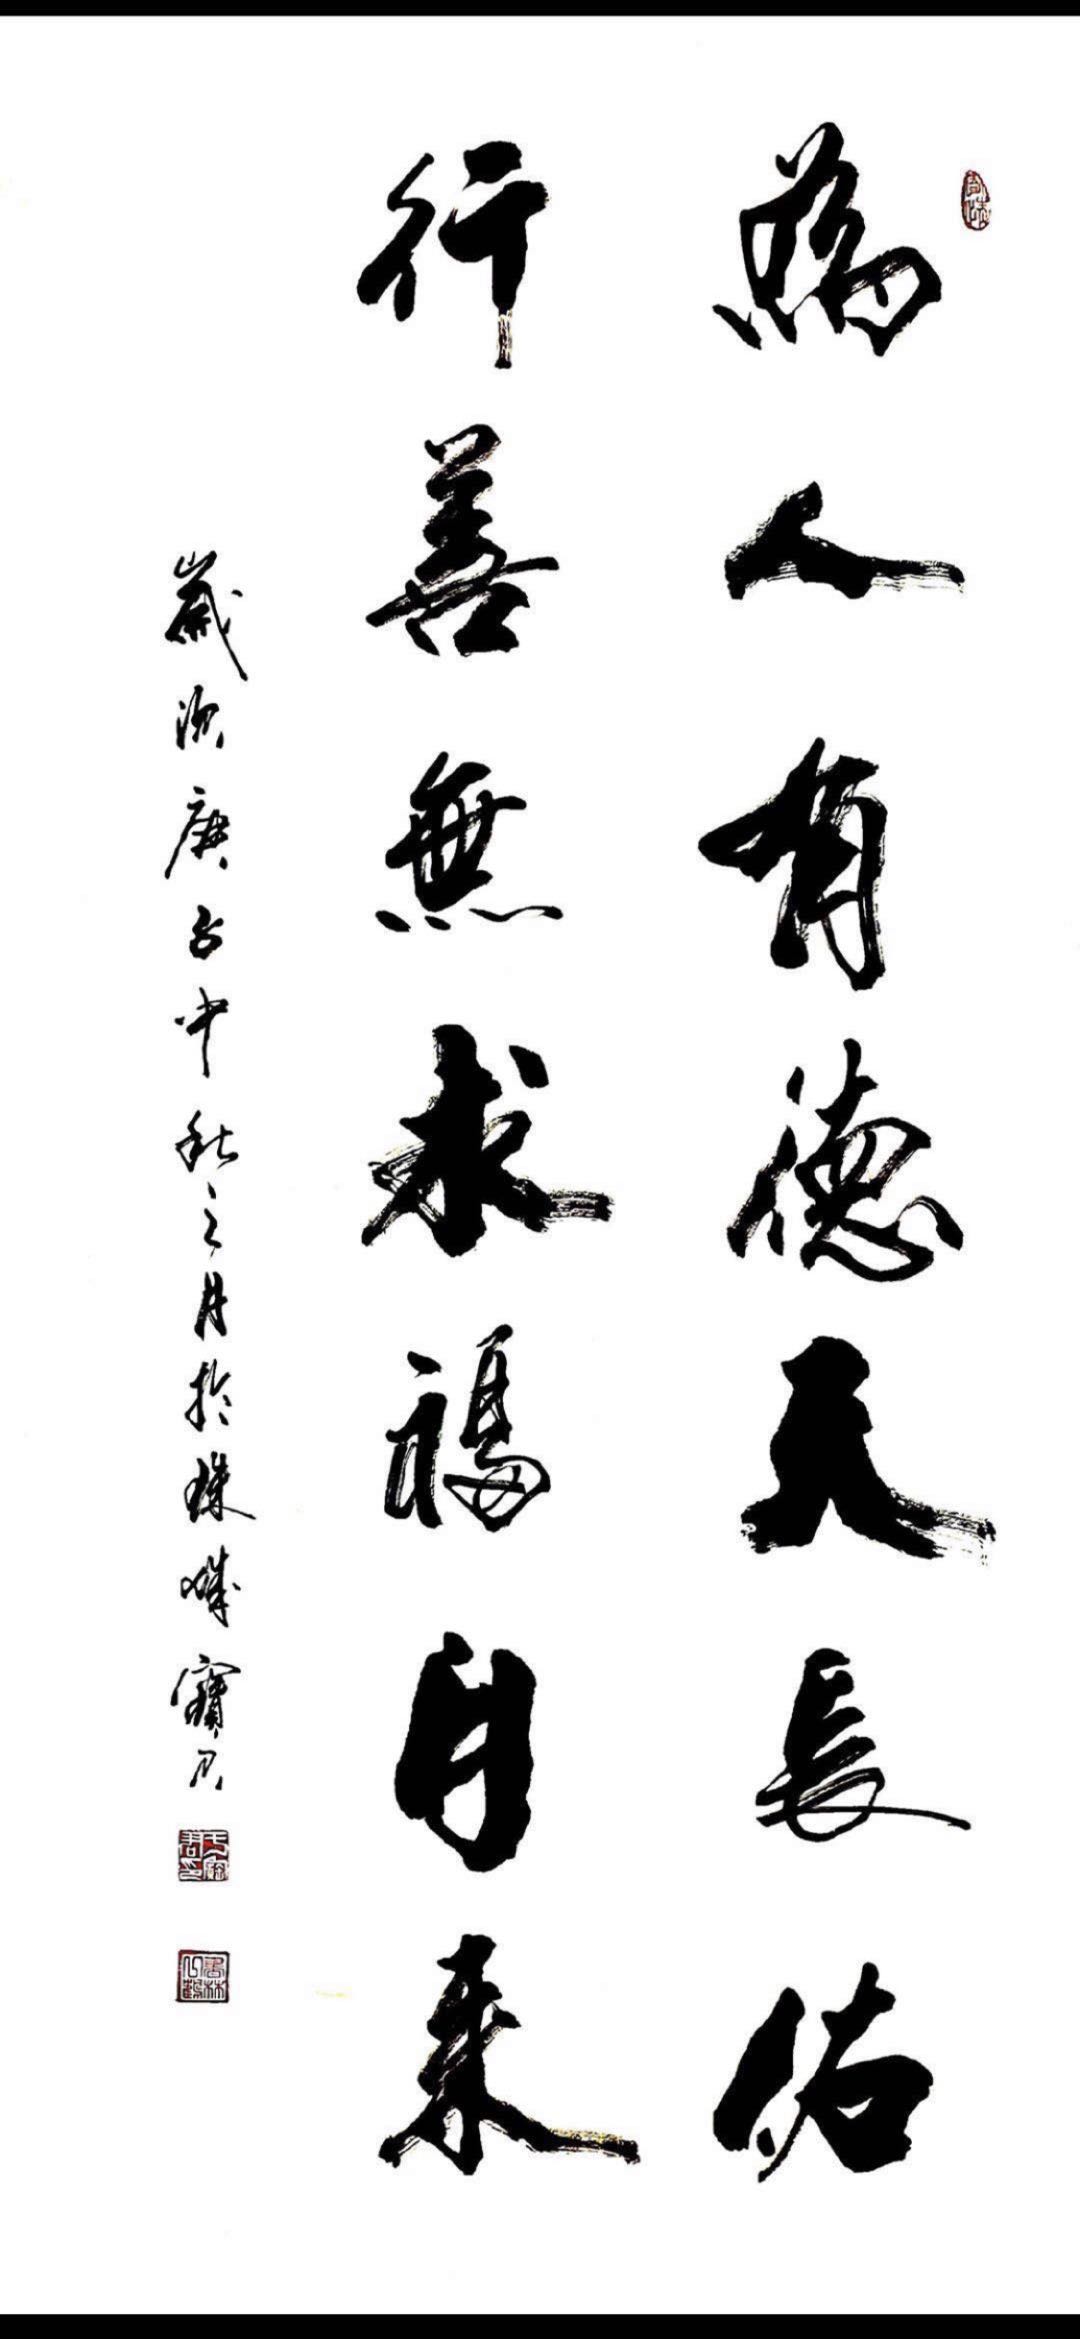 為人有德天長佑
行善無求福自来
歲次庚子中秋之月於珠城寶君